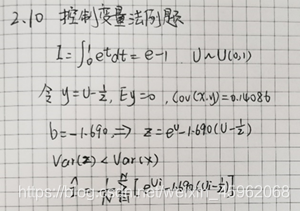 2.10 控制变量法例题
I=∫₀¹eᵗdt=e-1 U~U(0,1)
令 y=U-½, Ey=0, Cov(x,y)=0.14086
b=-1.690,⇒ z=eᵁ-1.690(U-½)
Var(z)<Var(x)
Î=1/N Σᵢ₌₁ᴺ[eᵁⁱ-1.690(Uᵢ-½)]
https://blog.csdn.net/weixin_45962068